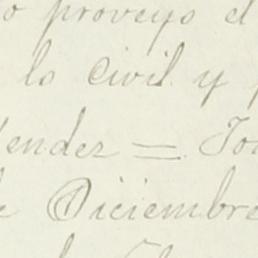 o proveyo el
lo Civil y
endez =
e Diciembre